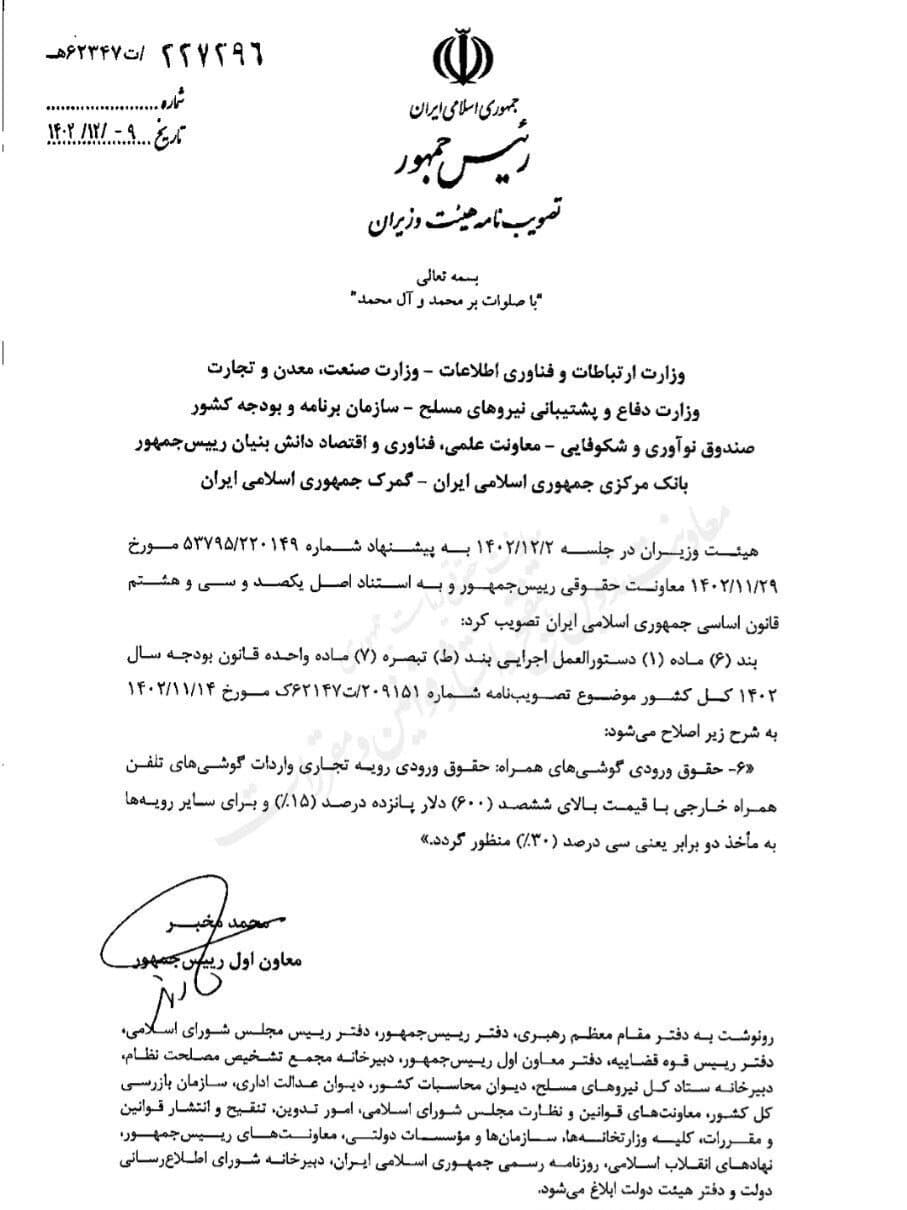 ۲۲۷۲۹۶ /ت۶۲۳۴۷هـ
شماره......................
تاریخ ...۹ -/۱۲/ ۱۴۰۲
جمهوری اسلامی ایران
رئیس جمهور
تصویب نامه هیئت وزیران
بسمه تعالی
"با صلوات بر محمد و آل محمد"
وزارت ارتباطات و فناوری اطلاعات – وزارت صنعت، معدن و تجارت
وزارت دفاع و پشتیبانی نیروهای مسلح – سازمان برنامه و بودجه کشور
صندوق نوآوری و شکوفایی – معاونت علمی، فناوری و اقتصاد دانش بنیان رییس‌جمهور
بانک مرکزی جمهوری اسلامی ایران – گمرک جمهوری اسلامی ایران
هیئت وزیران در جلسه ۱۴۰۲/۱۲/۲ به پیشنهاد شماره ۵۳۷۹۵/۲۲۰۱۴۹ مورخ
۱۴۰۲/۱۱/۲۹ معاونت حقوقی رییس‌جمهور و به استناد اصل یکصد و سی و هشتم
قانون اساسی جمهوری اسلامی ایران تصویب کرد:
بند (۶) ماده (۱) دستورالعمل اجرایی بند (ط) تبصره (۷) ماده واحده قانون بودجه سال
۱۴۰۲ کل کشور موضوع تصویب‌نامه شماره ۲۰۹۱۵۱/ت۶۲۱۴۷ک مورخ ۱۴۰۲/۱۱/۱۴
به شرح زیر اصلاح می‌شود:
«۶- حقوق ورودی گوشی‌های همراه: حقوق ورودی رویه تجاری واردات گوشی‌های تلفن
همراه خارجی با قیمت بالای ششصد (۶۰۰) دلار پانزده درصد (۱۵٪) و برای سایر رویه‌ها
به مأخذ دو برابر یعنی سی درصد (۳۰٪) منظور گردد.»
محمد مخبر
معاون اول رییس‌جمهور
رونوشت به دفتر مقام معظم رهبری، دفتر رییس‌جمهور، دفتر رییس مجلس شورای اسلامی،
دفتر رییس قوه قضاییه، دفتر معاون اول رییس‌جمهور، دبیرخانه مجمع تشخیص مصلحت نظام،
دبیرخانه ستاد کل نیروهای مسلح، دیوان محاسبات کشور، دیوان عدالت اداری، سازمان بازرسی
کل کشور، معاونت‌های قوانین و نظارت مجلس شورای اسلامی، امور تدوین، تنقیح و انتشار قوانین
و مقررات، کلیه وزارتخانه‌ها، سازمان‌ها و مؤسسات دولتی، معاونت‌های رییس‌جمهور،
نهادهای انقلاب اسلامی، روزنامه رسمی جمهوری اسلامی ایران، دبیرخانه شورای اطلاع‌رسانی
دولت و دفتر هیئت دولت ابلاغ می‌شود.